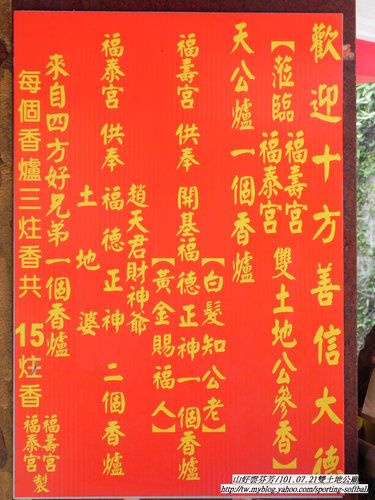 歡迎十方善信大德
【蒞臨福壽宮福泰宮雙土地公參香】
天公爐一個香爐
福壽宮 供奉 開基福德正神一個香爐
【白髮知公老】
【黃金賜福人】
福泰宮 供奉 福德正神 二個香爐
趙天君財神爺
土地婆
來自四方好兄弟一個香爐
每個香爐三炷香共15炷香
福壽宮
福泰宮 製
山好雲芬芳/101.07.21雙土地公廟
http://tw.myblog.yahoo.com/sporting-softbal